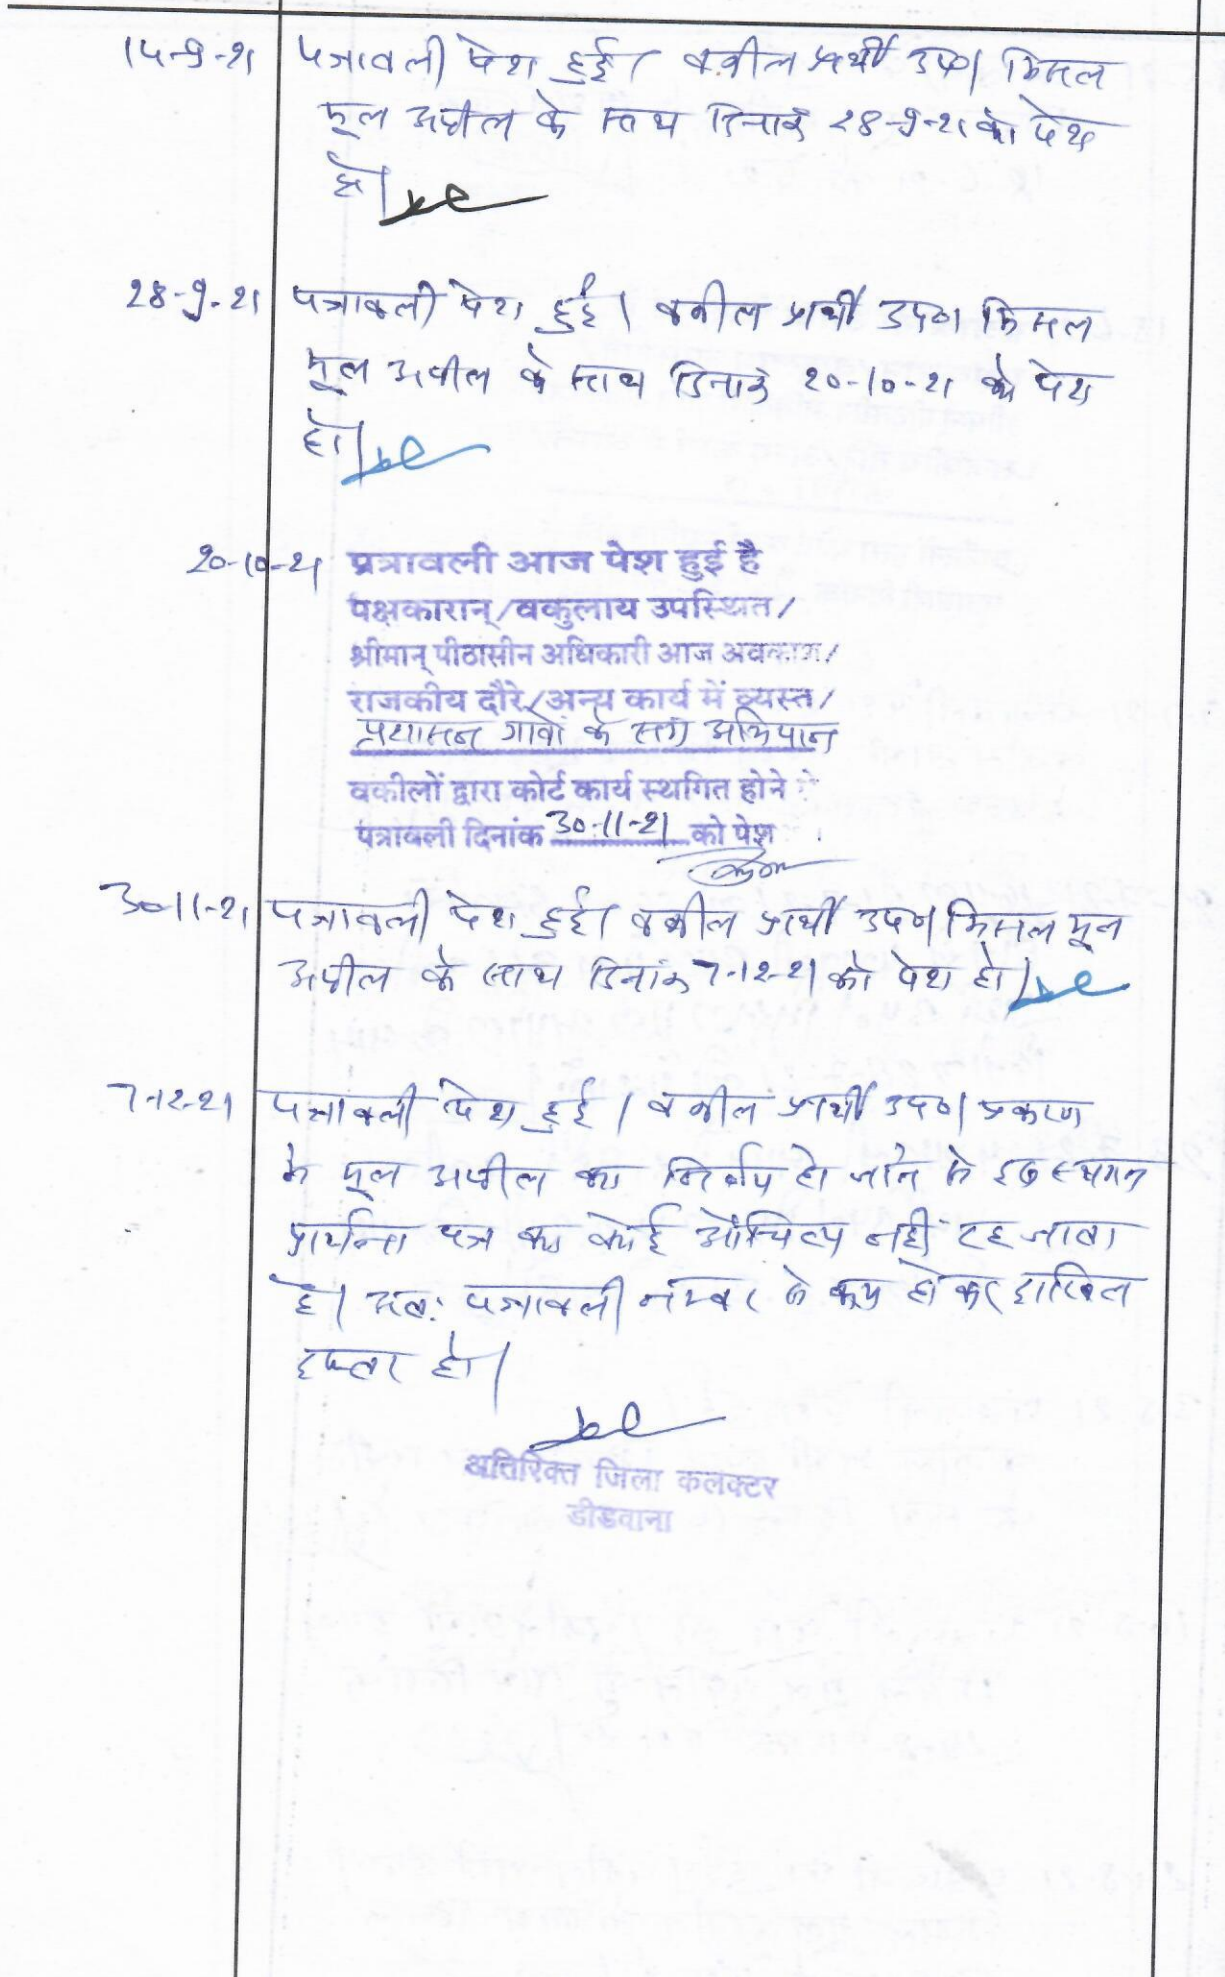 14-9-21 पत्रावली पेश हुई। वकील प्रार्थी उप०। मिसल
मूल अपील के साथ दिनांक 28-9-21 को पेश
हो।
28-9-21 पत्रावली पेश हुई। वकील प्रार्थी उप०। मिसल
मूल अपील के साथ दिनांक 20-10-21 को पेश
हो।
20-10-21 पत्रावली आज पेश हुई है
पक्षकारान्/वकुलाय उपस्थित/
श्रीमान् पीठासीन अधिकारी आज अवकाश/
राजकीय दौरे/अन्य कार्य में व्यस्त/
प्रशासन गावों के संग अभियान
वकीलों द्वारा कोर्ट कार्य स्थगित होने से
पत्रावली दिनांक 30-11-21 को पेश
30-11-21 पत्रावली पेश हुई। वकील प्रार्थी उप०। मिसल मूल
अपील के साथ दिनांक 7-12-21 को पेश हो।
7-12-21 पत्रावली पेश हुई। वकील प्रार्थी उप०। प्रकरण
के मूल अपील का निर्णय हो जाने से इस स्थगन
प्रार्थना पत्र का कोई औचित्य नहीं रह जाता
है। अतः पत्रावली नम्बर से कम होकर दाखिल
दफ्तर हो।
अतिरिक्त जिला कलक्टर
डीडवाना